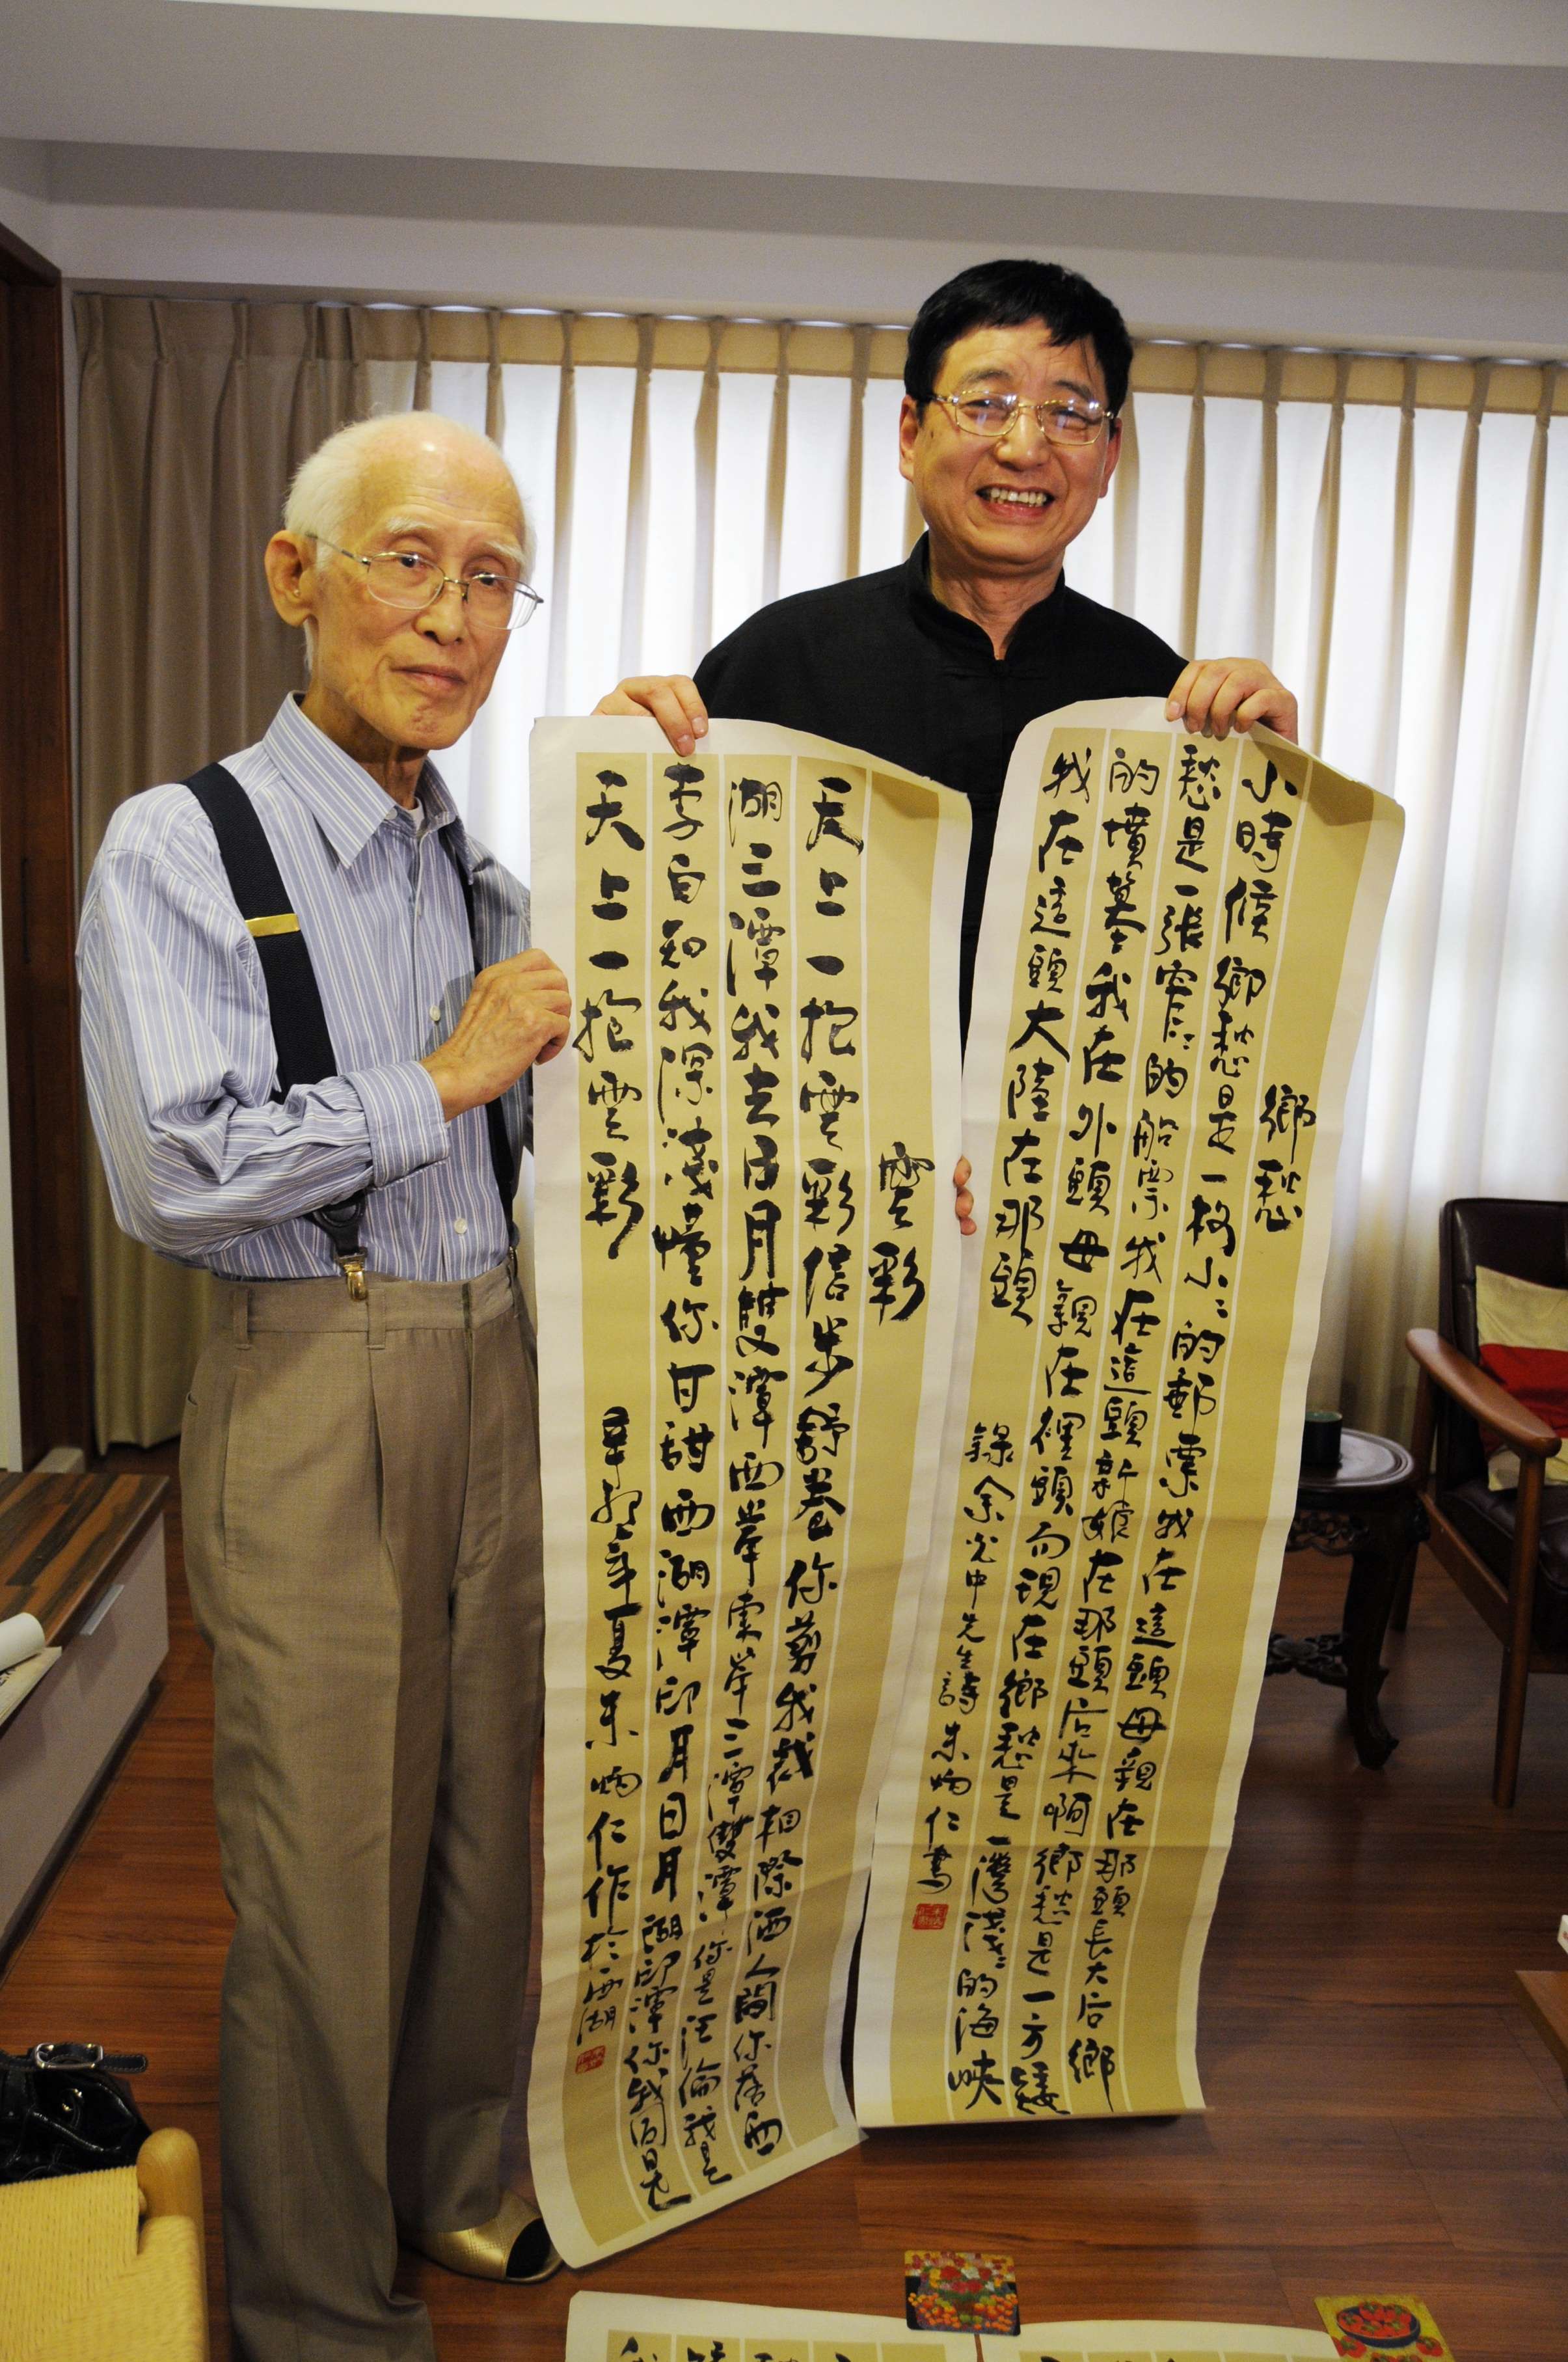 鄉愁
小時候鄉愁是一枚小〻的郵票我在這頭母親在那頭長大后鄉
愁是一張窄〻的船票我在這頭新娘在那頭后來啊鄉愁是一方矮〻
的墳墓我在外頭母親在裡頭而現在鄉愁是一灣淺〻的海峽
我在這頭大陸在那頭 錄余光中先生詩朱炳仁書
雲彩
天上一抱雲彩信步舒卷你剪我裁相際洒人間你落西
湖三潭我去日月雙潭西岸東岸三潭雙潭你是汪倫我是
李白知我深淺懂你甘甜西湖潭印月日月湖印潭你我同是
天上一抱雲彩 辛卯年夏朱炳仁作於西湖